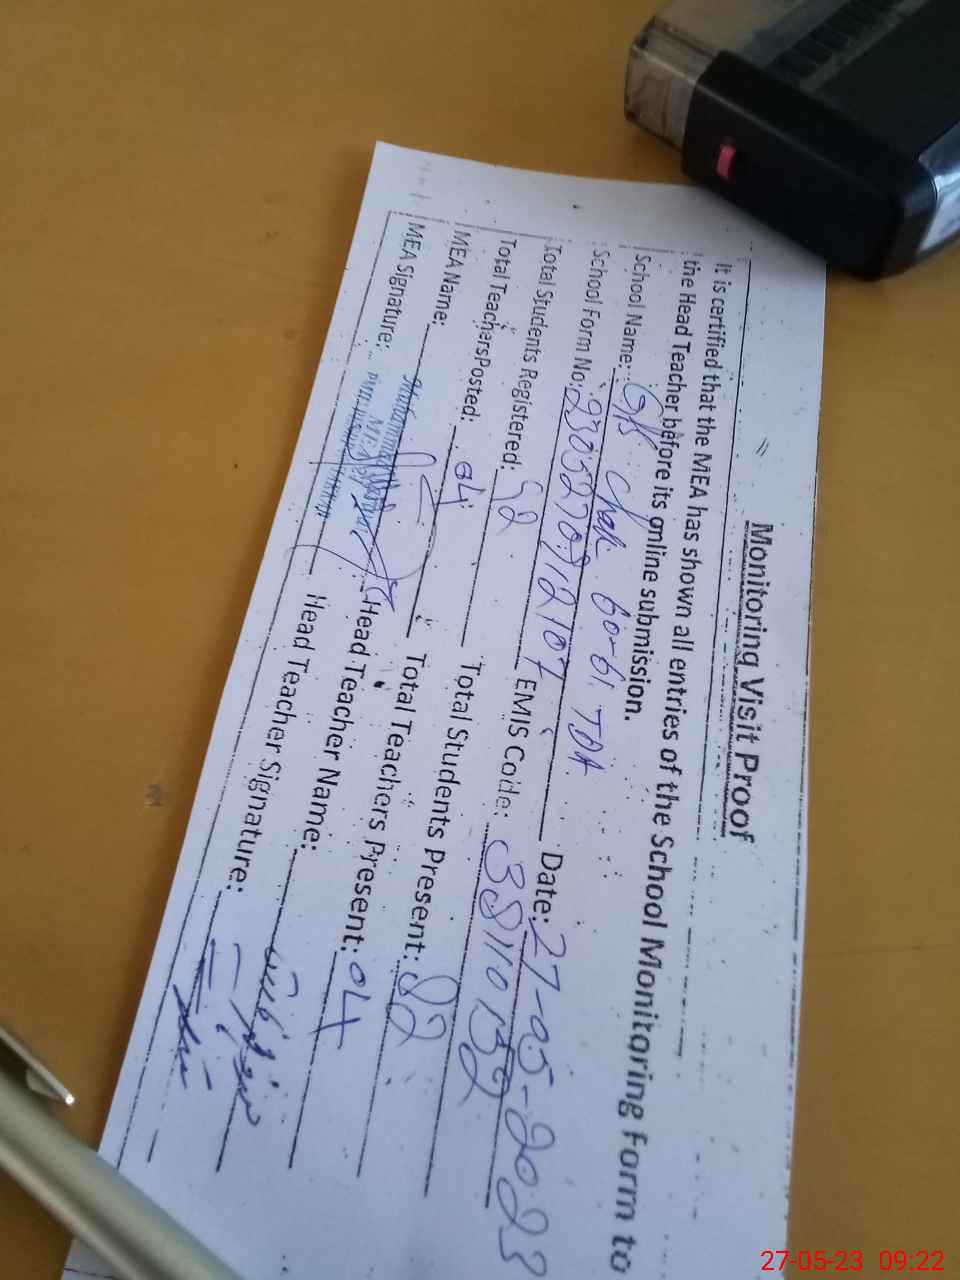 Monitoring Visit Proof
It is certified that the MEA has shown all entries of the School Monitoring Form to
the Head Teacher before its online submission.
School Name: GPS Chak 60-61 TDA
School Form No: 2305270812107 Date: 27-05-2023
Total Students Registered: 92 EMIS Code: 38110152
Total Teachers Posted: 04 Total Students Present: 82
MEA Name: Total Teachers Present: 04
MEA Signature: Head Teacher Name:
Head Teacher Signature:
27-05-23 09:22